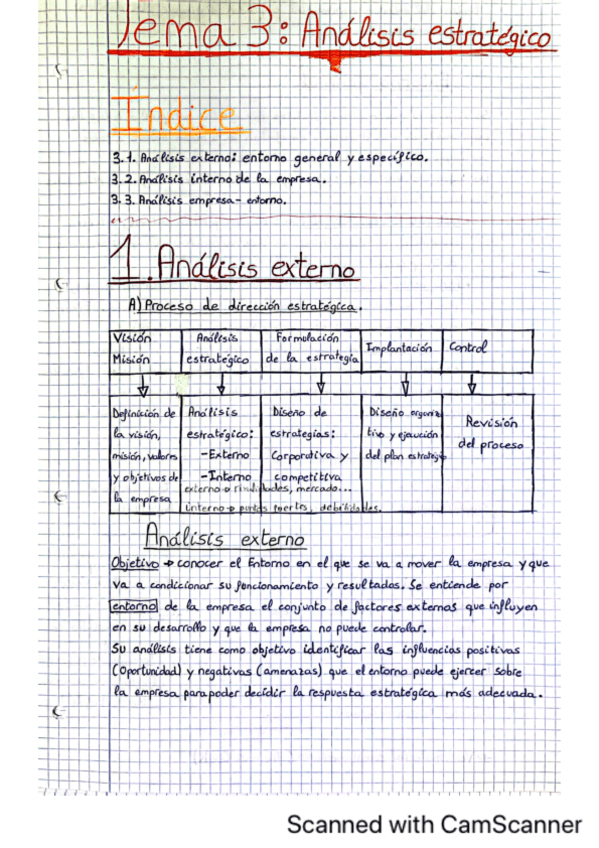 Tema 3: Análisis estratégico
Índice
3.1. Análisis externo: entorno general y específico.
3.2. Análisis interno de la empresa.
3.3. Análisis empresa-entorno.
1. Análisis externo
A) Proceso de dirección estratégica.
Visión
Misión
Análisis
estratégico
Formulación
de la estrategia
Implantación
Control
Definición de
la visión,
misión, valores
y objetivos de
la empresa
Análisis
estratégico:
-Externo
-Interno
externo → rivalidades, mercado...
interno → puntos fuertes, debilidades.
Diseño de
estrategias:
Corporativa y
competitiva
Diseño organiza
tivo y ejecución
del plan estratégico
Revisión
del proceso
Análisis externo
Objetivo → conocer el Entorno en el que se va a mover la empresa y que
va a condicionar su funcionamiento y resultados. Se entiende por
entorno de la empresa el conjunto de factores externos que influyen
en su desarrollo y que la empresa no puede controlar.
Su análisis tiene como objetivo identificar las influencias positivas
(oportunidad) y negativas (amenazas) que el entorno puede ejercer sobre
la empresa para poder decidir la respuesta estratégica más adecuada.
Scanned with CamScanner